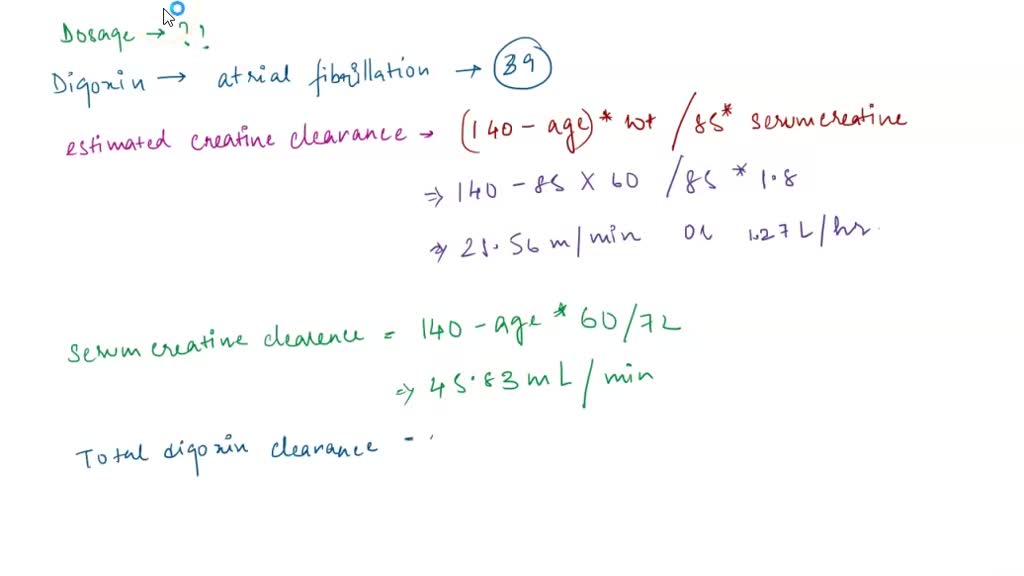 Dosage → ?!
Digoxin → atrial fibrillation → 39
estimated creatine clearance → (140 - age) * wt / 85* serumcreatine
⇒ 140 - 85 X 60 / 85 * 1.8
⇒ 21.56 m/min or 1.27 L/hr.
serum creatine clearence = 140 - age * 60/72
⇒ 45.83 mL/min
Total digoxin clearance -